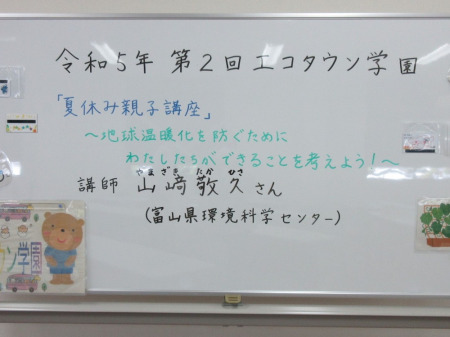 令和5年 第2回エコタウン学園
「夏休み親子講座」
～地球温暖化を防ぐために
わたしたちができることを考えよう!～
やまざき たか ひさ
講師 山﨑敬久さん
(富山県環境科学センター)
ウン学園